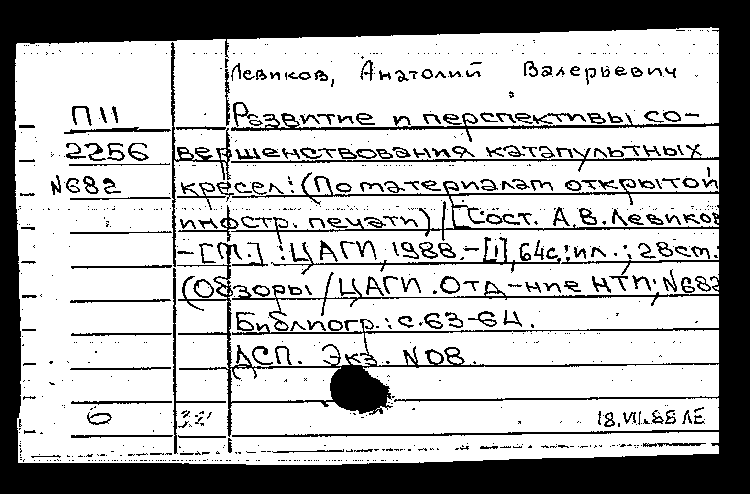 Левиков, Анатолий Валерьевич
П11 Развитие и перспективы со-
2256 вершенствования катапультных
N682 кресел: (По материалам открытой
иностр. печати) / [Сост. А.В.Левиков
- [М.] : ЦАГИ, 1988. - [1], 64с.: ил.; 28см.
(Обзоры / ЦАГИ. Отд-ние НТИ; N682
Библиогр.: с.63-64.
ДСП. Экз. N08.
6 18.VII.88 ЛЕ